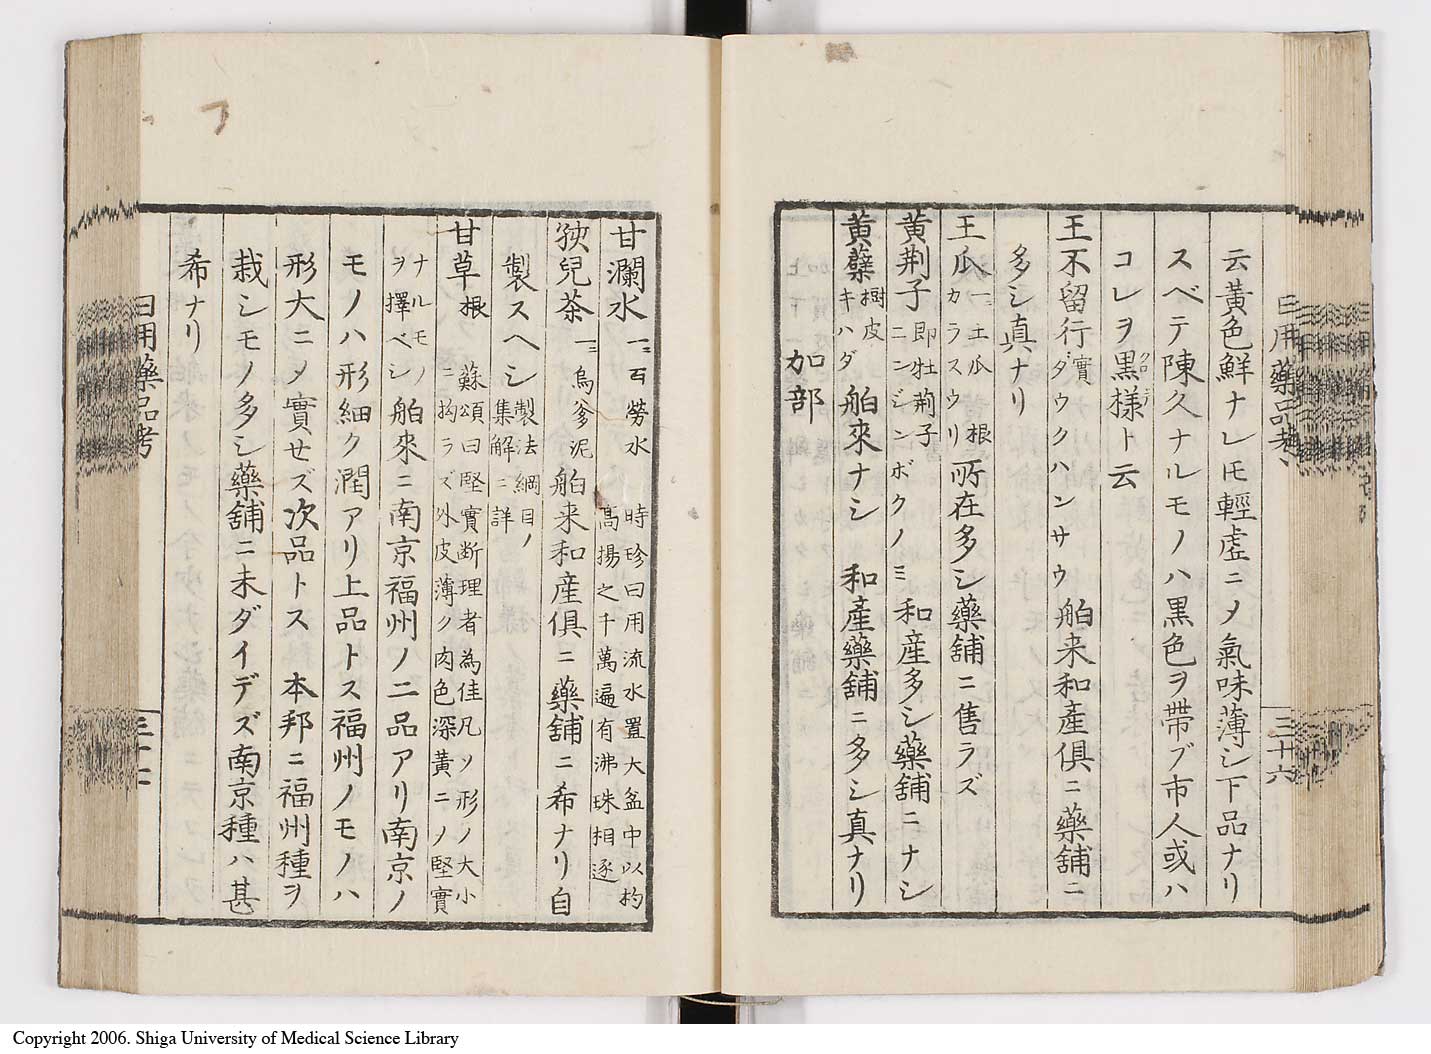 云黃色鮮ナレモ輕虛ニノ氣味薄シ下品ナリ
スベテ陳久ナルモノハ黒色ヲ帶ブ市人或ハ
コレヲ黒様ト云
王不留行實ダウクハンサウ 舶来和産俱ニ藥舖ニ
多シ真ナリ
王瓜一ニ土瓜根カラスウリ 所在多シ藥舖ニ售ラズ
黄荆子即牡荊子ニンジンボクノミ 和産多シ藥舖ニナシ
黄蘗樹皮キハダ 舶來ナシ 和產藥舖ニ多シ真ナリ
加部
日用藥品考
三十六
甘瀾水一ニ百勞水 時珍曰用流水置大盆中以杓
高揚之千萬遍有沸珠相逐
孩兒茶一ニ烏爹泥 舶来和産俱ニ藥舖ニ希ナリ自
製スヘシ製法綱目ノ集解ニ詳
甘草根 蘇頌曰堅實断理者為佳凡ソ形ノ大小
ニ拘ラズ外皮薄ク肉色深黄ニノ堅實
ナルモノヲ擇ベシ 舶來ニ南京福州ノ二品アリ南京ノ
モノハ形細ク潤アリ上品トス福州ノモノハ
形大ニノ實せズ次品トス 本邦ニ福州種ヲ
栽シモノ多シ藥舖ニ未ダイデズ南京種ハ甚
希ナリ
日用藥品考
Copyright 2006. Shiga University of Medical Science Library